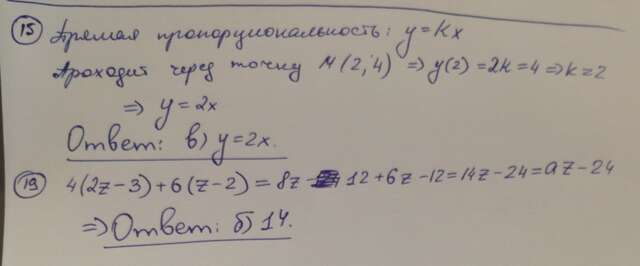 15 Прямая пропорциональность: y=kx
Проходит через точку M(2;4) => y(2)=2k=4 => k=2
=> y=2x
Ответ: в) y=2x.
19 4(2z-3)+6(z-2)=8z-12+6z-12=14z-24=az-24
=> Ответ: б) 14.